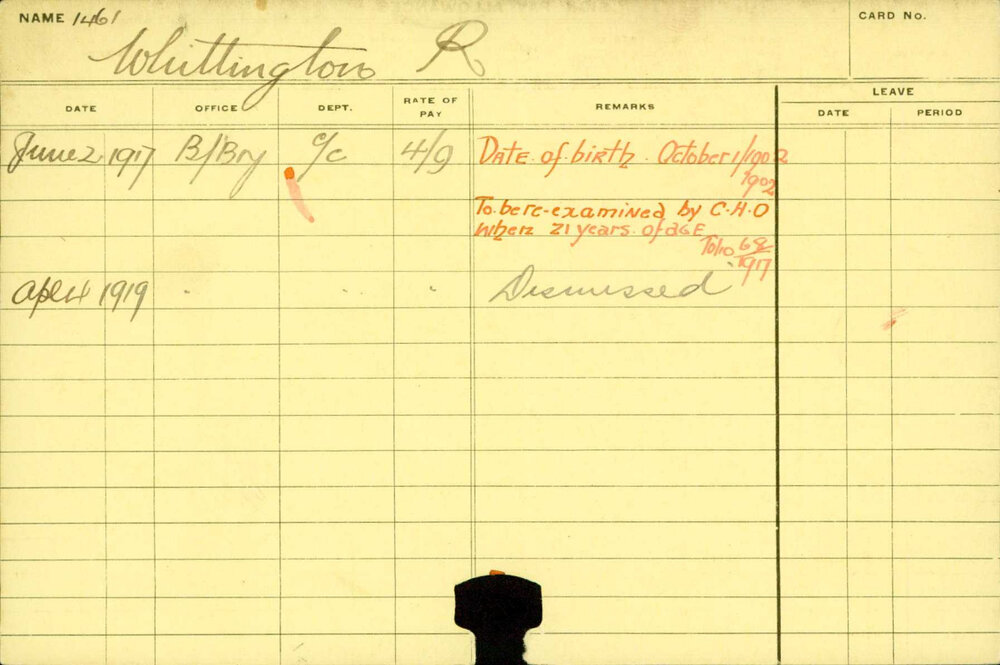 NAME 1461
CARD No.
Whittington R
LEAVE
DATE OFFICE DEPT. RATE OF PAY REMARKS DATE PERIOD
June 2 1917 B/Bry C/C 4/9 Date of birth. October 1/1902
1902
To be re-examined by C.H.O
when 21 years of age
Folio 68/1917
Apl 4 1919 " " " Dismissed